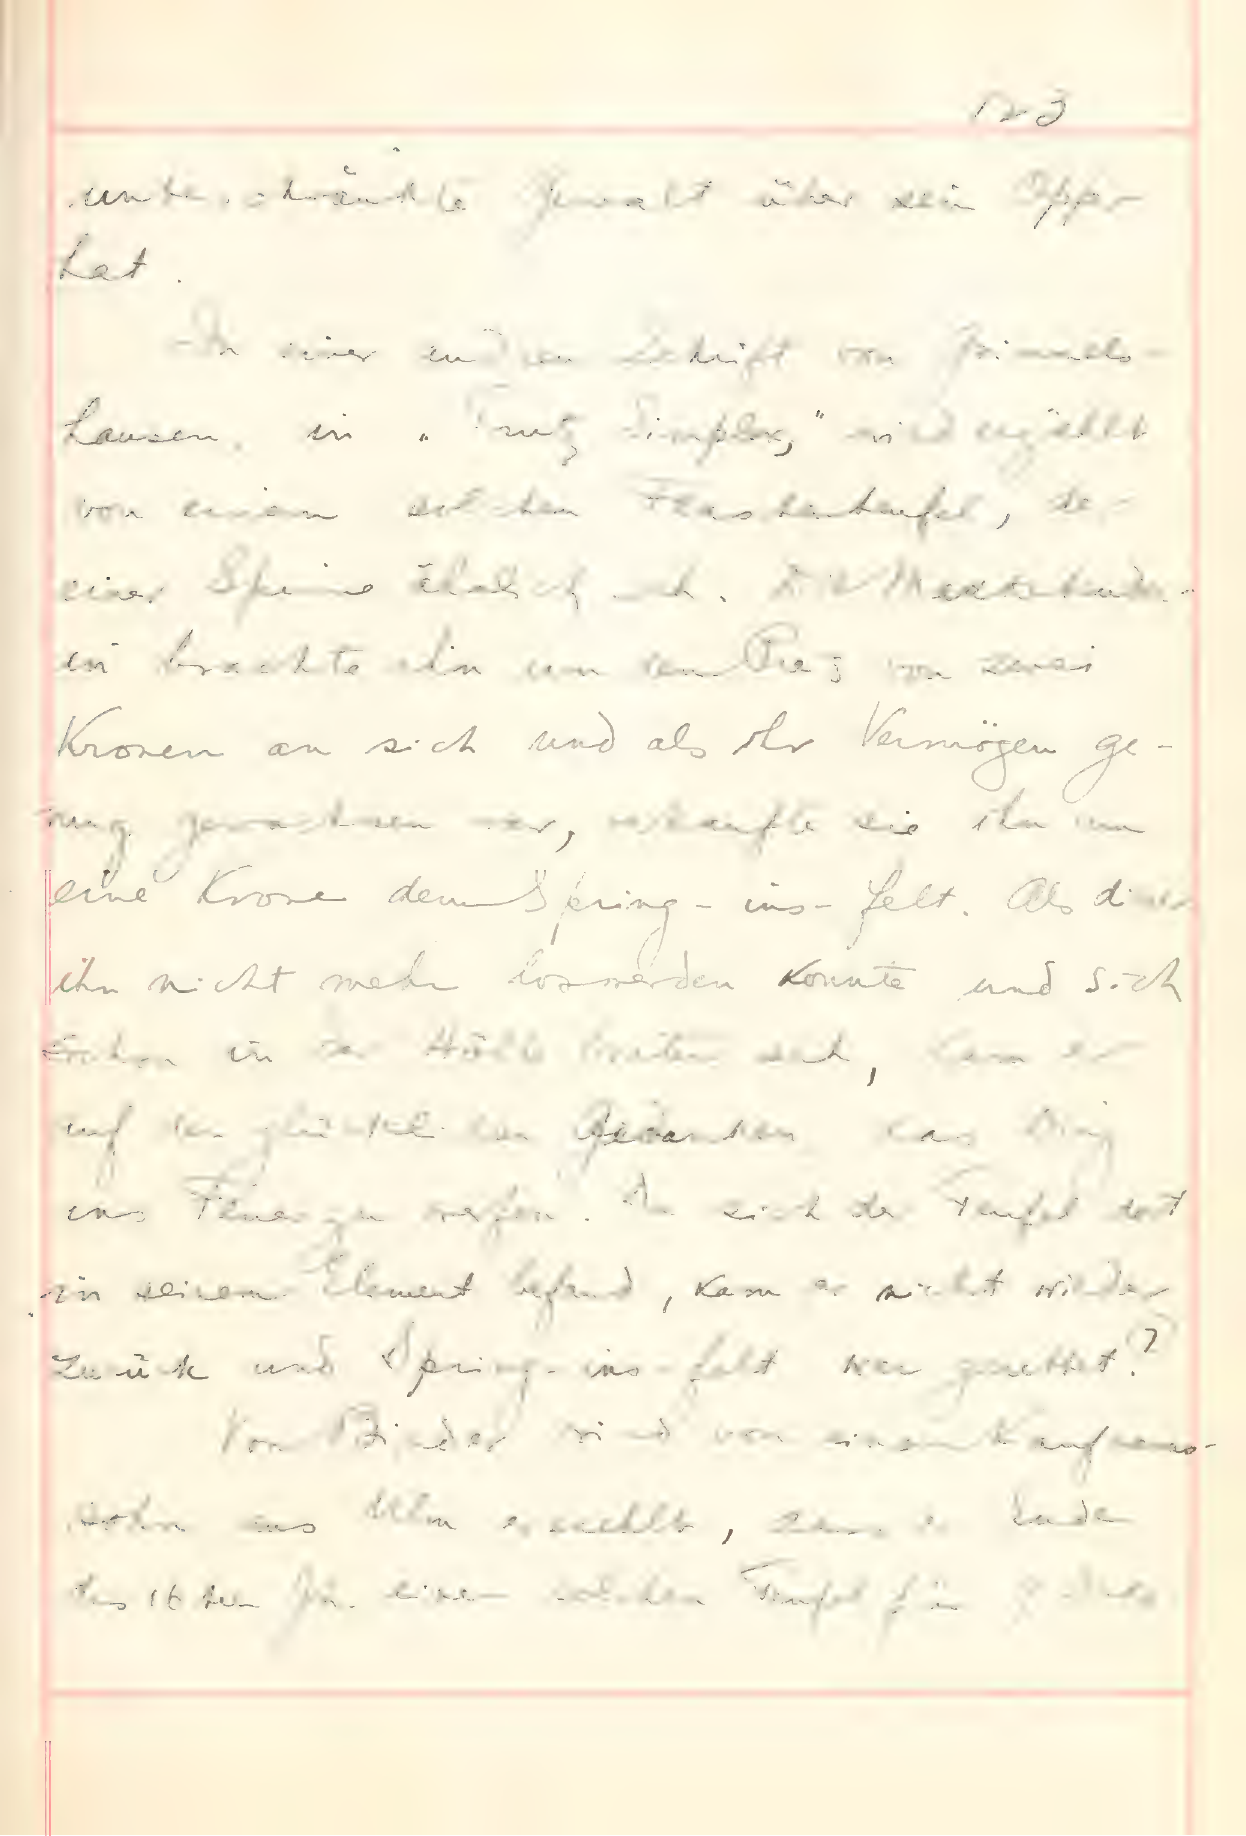 123
Gewalt über sein Opfer
hat.
In einer andren Schrift von Grimmels-
hausen, in „Trutz Simplex," wird erzählt
von einem solchen Flaschenteufel, der
einer Spinne ähnlich sah. Die
in brachte ihn um den Preis von zwei
Kronen an sich und als ihr Vermögen ge-
nug gewachsen war, verkaufte sie ihn um
eine Krone dem Spring-ins-felt. Als dieser
ihn nicht mehr loswerden konnte und sich
schon in der Hölle braten sah, kam er
auf den glücklichen Gedanken das Ding
ins Feuer zu werfen. Da sich der Teufel dort
in seinem Element befand, kam er nicht wieder
zurück und Spring-ins-felt war gerettet.?)
Von Binder wird von einem Kaufmans-
sohn aus Ulm erzaehlt, dass er Ende
des 16 ten Jh. einen solchen Teufel für